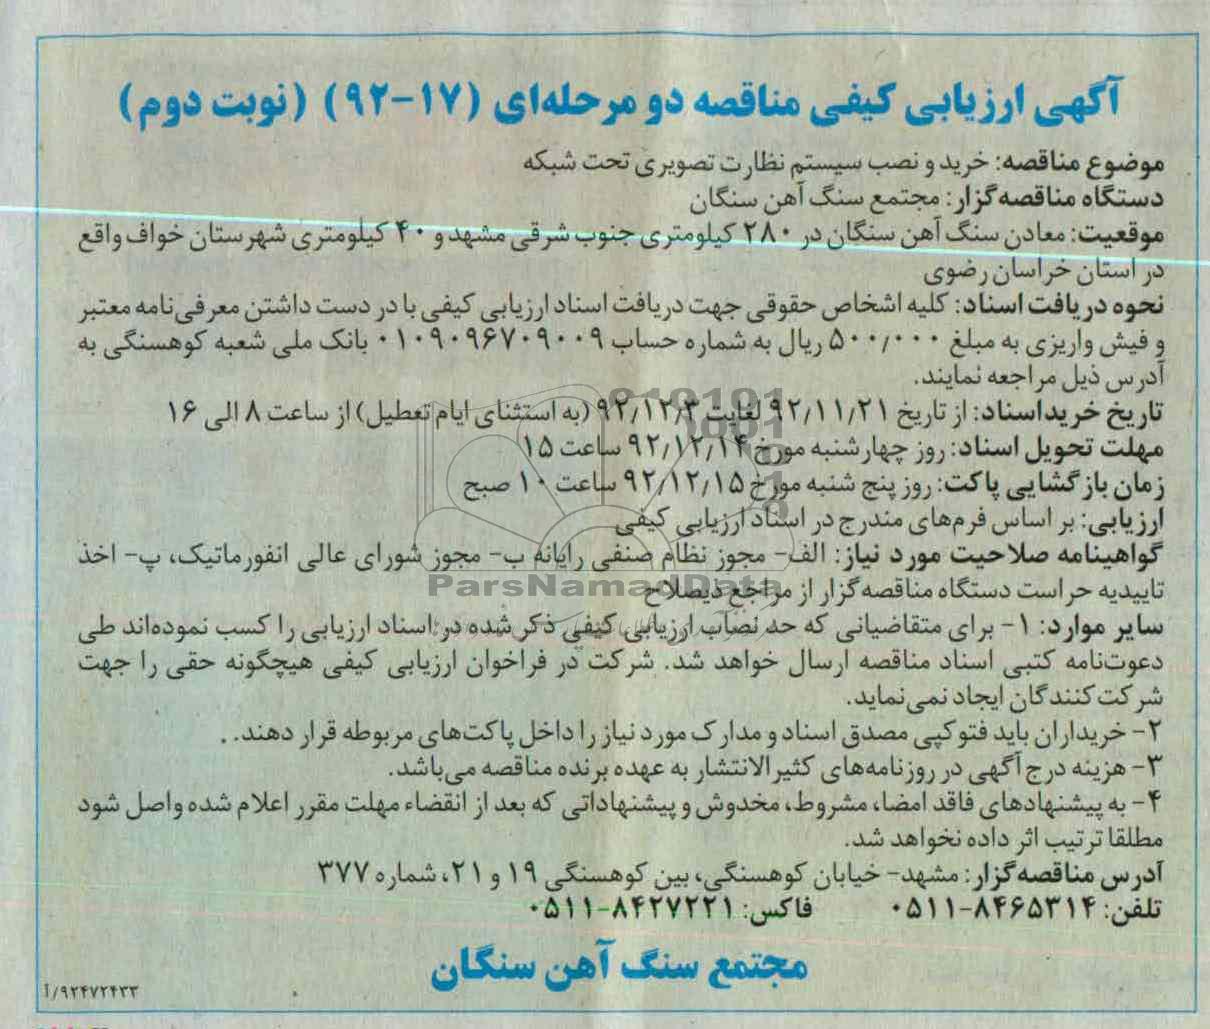 آگهی ارزیابی کیفی مناقصه دو مرحله‌ای (۱۷-۹۲) (نوبت دوم)
موضوع مناقصه: خرید و نصب سیستم نظارت تصویری تحت شبکه
دستگاه مناقصه‌گزار: مجتمع سنگ آهن سنگان
موقعیت: معادن سنگ آهن سنگان در ۲۸۰ کیلومتری جنوب شرقی مشهد و ۴۰ کیلومتری شهرستان خواف واقع
در استان خراسان رضوی
نحوه دریافت اسناد: کلیه اشخاص حقوقی جهت دریافت اسناد ارزیابی کیفی با در دست داشتن معرفی‌نامه معتبر
و فیش واریزی به مبلغ ۵۰۰/۰۰۰ ریال به شماره حساب ۰۱۰۹۰۹۶۷۰۹۰۰۹ بانک ملی شعبه کوهسنگی به
آدرس ذیل مراجعه نمایند.
تاریخ خرید اسناد: از تاریخ ۹۲/۱۱/۲۱ لغایت ۹۲/۱۲/۳ (به استثنای ایام تعطیل) از ساعت ۸ الی ۱۶
مهلت تحویل اسناد: روز چهارشنبه مورخ ۹۲/۱۲/۱۴ ساعت ۱۵
زمان بازگشایی پاکت: روز پنج شنبه مورخ ۹۲/۱۲/۱۵ ساعت ۱۰ صبح
ارزیابی: بر اساس فرم‌های مندرج در اسناد ارزیابی کیفی
گواهینامه صلاحیت مورد نیاز: الف- مجوز نظام صنفی رایانه ب- مجوز شورای عالی انفورماتیک، پ- اخذ
تاییدیه حراست دستگاه مناقصه‌گزار از مراجع ذیصلاح
ParsNamadData
سایر موارد: ۱- برای متقاضیانی که حد نصاب ارزیابی کیفی ذکر شده در اسناد ارزیابی را کسب نموده‌اند طی
دعوت‌نامه کتبی اسناد مناقصه ارسال خواهد شد. شرکت در فراخوان ارزیابی کیفی هیچگونه حقی را جهت
شرکت‌کنندگان ایجاد نمی‌نماید.
۲- خریداران باید فتوکپی مصدق اسناد و مدارک مورد نیاز را داخل پاکت‌های مربوطه قرار دهند.
۳- هزینه درج آگهی در روزنامه‌های کثیرالانتشار به عهده برنده مناقصه می‌باشد.
۴- به پیشنهادهای فاقد امضا، مشروط، مخدوش و پیشنهاداتی که بعد از انقضاء مهلت مقرر اعلام شده واصل شود
مطلقا ترتیب اثر داده نخواهد شد.
آدرس مناقصه‌گزار: مشهد- خیابان کوهسنگی، بین کوهسنگی ۱۹ و ۲۱، شماره ۳۷۷
تلفن: ۸۴۶۵۳۱۴-۰۵۱۱ فاکس: ۸۴۲۷۲۲۱-۰۵۱۱
مجتمع سنگ آهن سنگان
آ/۹۲۴۷۲۴۳۳